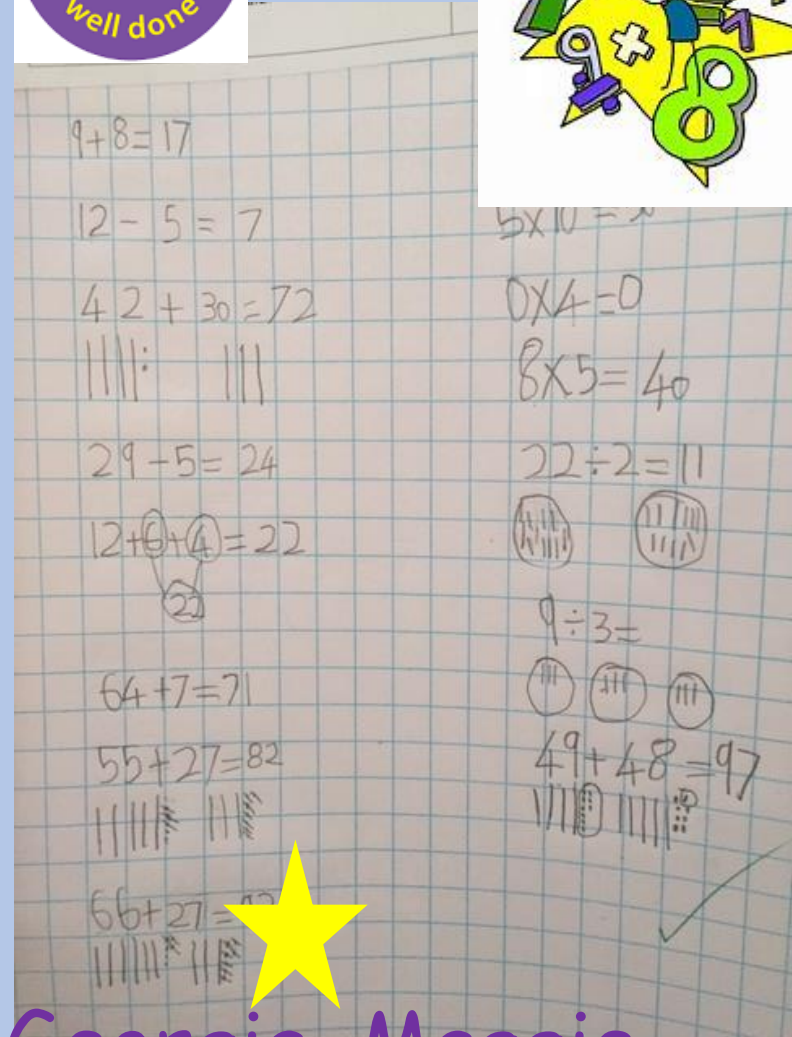 well done
9 + 8
9+8=17
12 - 5 = 7
42 + 30 = 72
29-5= 24
12+6+4=22
22
64+7=71
55+27=82
66+27=
5x10 =
0x4=0
8x5= 40
22÷2=11
9÷3=
49+48=97